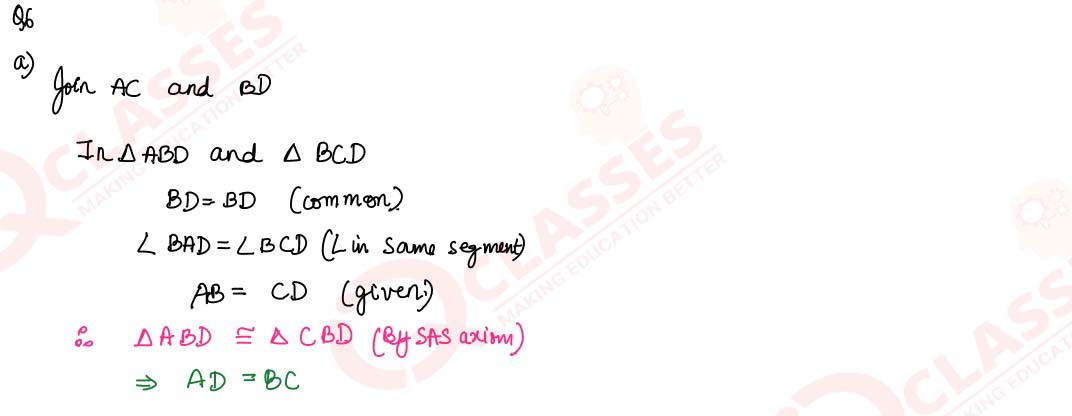 Q6
a)
Join AC and BD
In △ ABD and △ BCD
BD = BD (common)
∠ BAD = ∠ BCD (∠ in same segment)
AB = CD (given)
∴ △ ABD ≅ △ CBD (By SAS axiom)
⇒ AD = BC
CLASSES
MAKING EDUCATION BETTER
CLASSES
MAKING EDUCATION BETTER
CLASS
KING EDUCAT